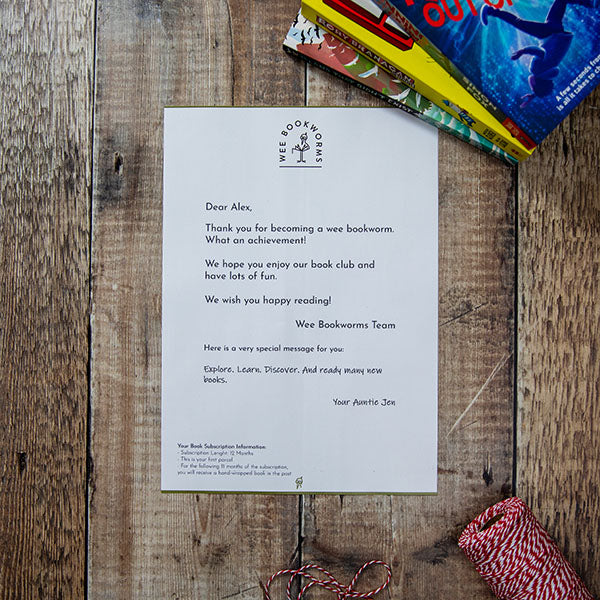 OUT OF
A few seconds
is all it takes to
WEE BOOKWORMS
Dear Alex,
Thank you for becoming a wee bookworm.
What an achievement!
We hope you enjoy our book club and
have lots of fun.
We wish you happy reading!
Wee Bookworms Team
Here is a very special message for you:
Explore. Learn. Discover. And ready many new
books.
Your Auntie Jen
Your Book Subscription Information:
- Subscription Lenght: 12 Months
- This is your first parcel
- For the following 11 months of the subscription,
you will receive a hand-wrapped book in the post